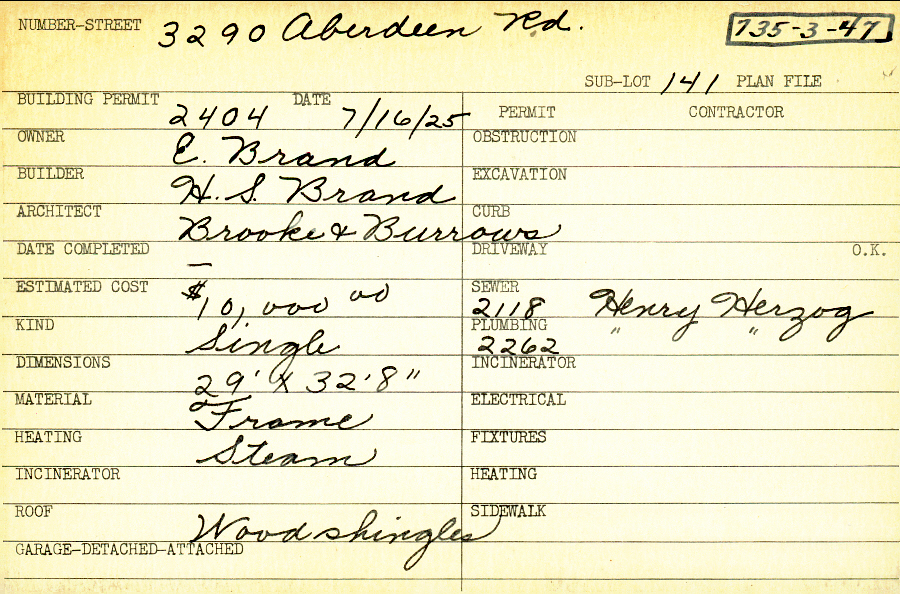 NUMBER-STREET 3290 Aberdeen Rd. 735-3-47
SUB-LOT 141 PLAN FILE
BUILDING PERMIT 2404 DATE 7/16/25 PERMIT CONTRACTOR
OWNER E. Brand OBSTRUCTION
BUILDER H. S. Brand EXCAVATION
ARCHITECT Brooke & Burrows CURB
DATE COMPLETED — DRIVEWAY O.K.
ESTIMATED COST $10,000 00 SEWER 2118 Henry Herzog
KIND Single PLUMBING 2262 " "
DIMENSIONS 29' X 32'8" INCINERATOR
MATERIAL Frame ELECTRICAL
HEATING Steam FIXTURES
INCINERATOR HEATING
ROOF Wood shingles SIDEWALK
GARAGE-DETACHED-ATTACHED